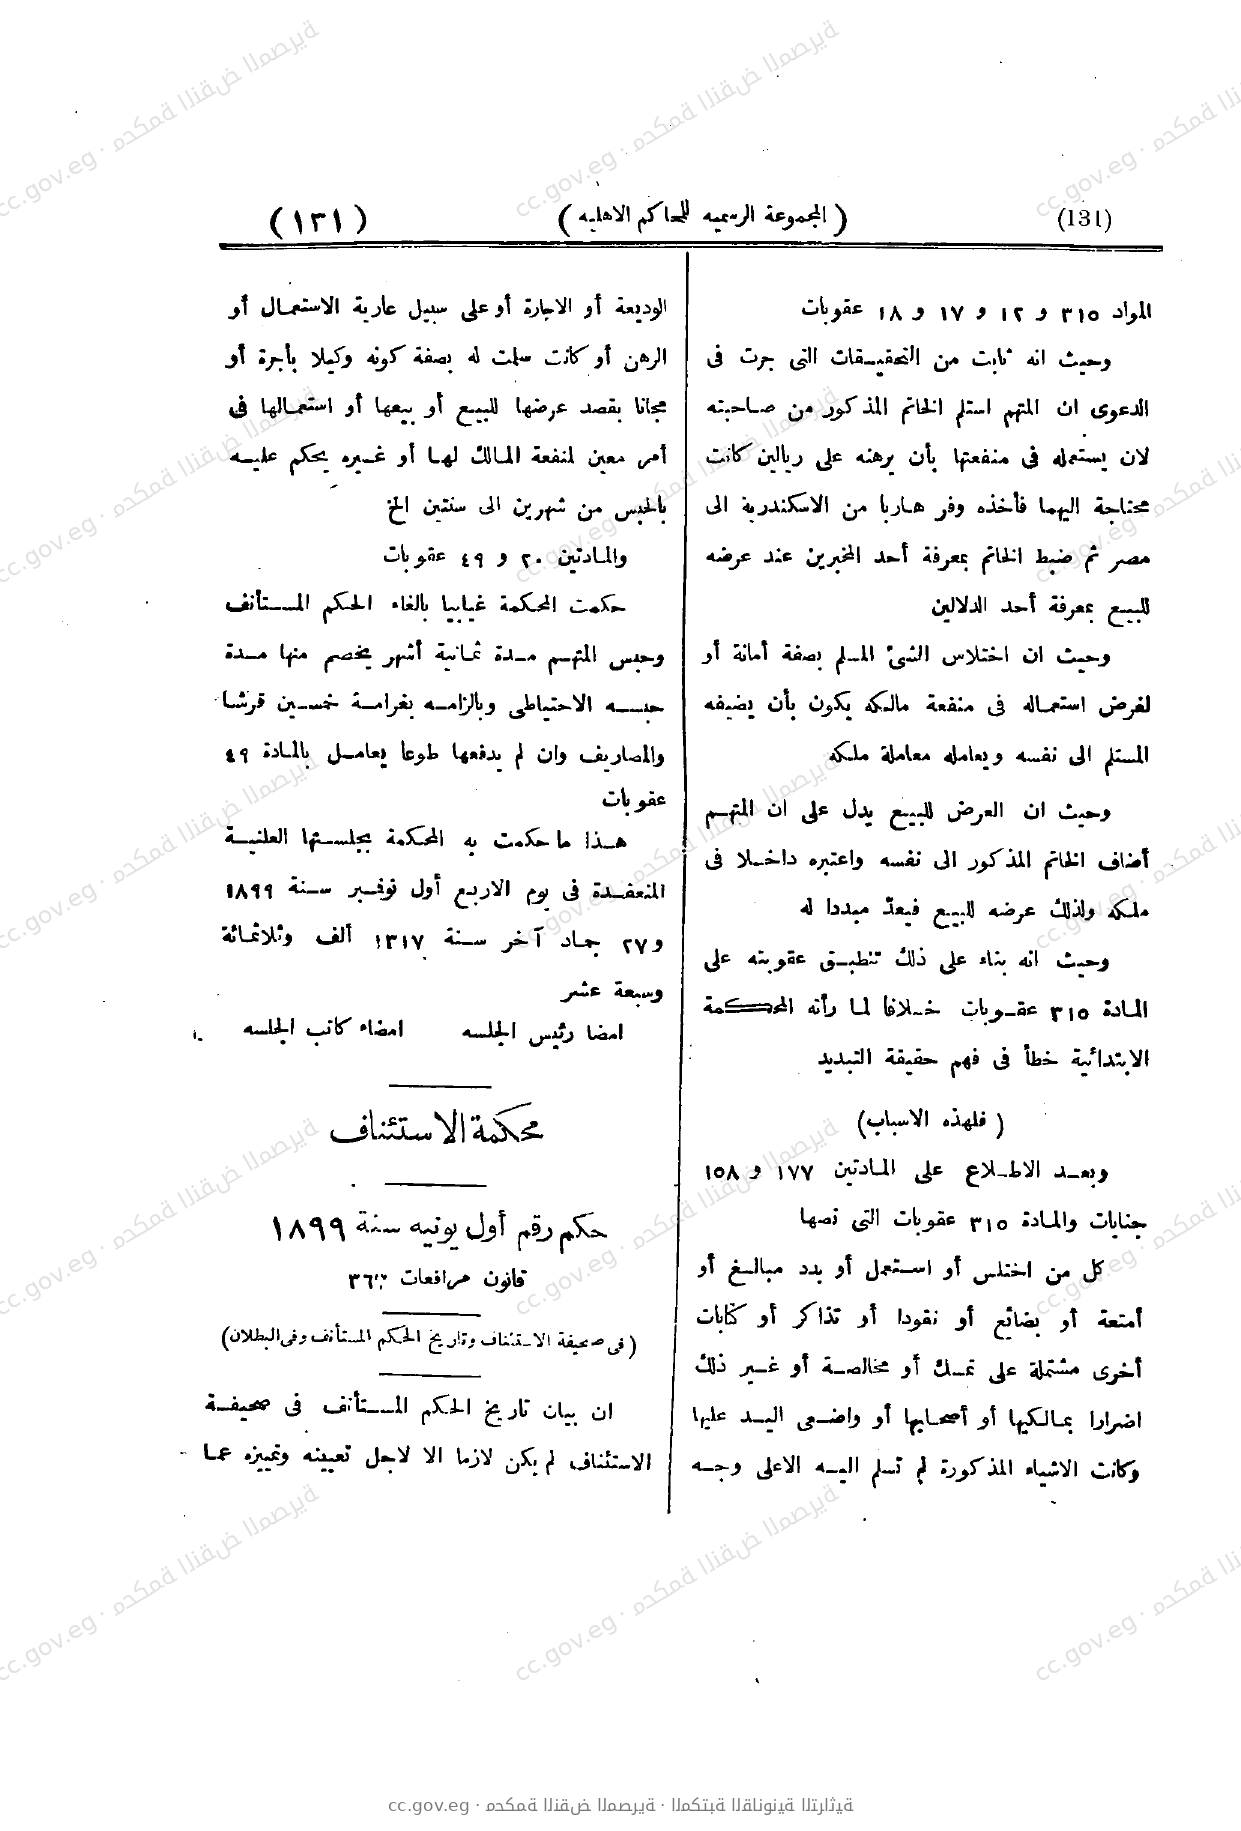 (131) ( المجموعة الرسمية للمحاكم الاهلية ) ( ١٣١ )
المواد ٣١٥ و ١٢ و ١٧ و ١٨ عقوبات
وحيث انه ثابت من التحقيقات التى جرت فى
الدعوى ان المتهم استلم الخاتم المذكور من صاحبته
لان يستعمله فى منفعتها بأن يرهنه على ريالين كانت
محتاجة اليهما فأخذه وفر هاربا من الاسكندرية الى
مصر ثم ضبط الخاتم بمعرفة أحد المخبرين عند عرضه
للبيع بمعرفة أحد الدلالين
وحيث ان اختلاس الشئ المسلم بصفة أمانة أو
لغرض استعماله فى منفعة مالكه يكون بأن يضيفه
المستلم الى نفسه ويعامله معاملة ملكه
وحيث ان العرض للبيع يدل على ان المتهم
أضاف الخاتم المذكور الى نفسه واعتبره داخلا فى
ملكه ولذلك عرضه للبيع فيعدّ مبددا له
وحيث انه بناء على ذلك تنطبق عقوبته على
المادة ٣١٥ عقوبات خلافا لما رأته المحكمة
الابتدائية خطأ فى فهم حقيقة التبديد
( فلهذه الاسباب )
وبعد الاطلاع على المادتين ١٧٧ و ١٥٨
جنايات والمادة ٣١٥ عقوبات التى نصها
كل من اختلس أو استعمل أو بدد مبالغ أو
أمتعة أو بضائع أو نقودا أو تذاكر أو كتابات
أخرى مشتملة على تمسك أو مخالصة أو غير ذلك
اضرارا بمالكيها أو أصحابها أو واضعى اليد عليها
وكانت الاشياء المذكورة لم تسلم اليه الاعلى وجه
الوديعة أو الاجارة أو على سبيل عارية الاستعمال أو
الرهن أو كانت سلمت له بصفة كونه وكيلا بأجرة أو
مجانا بقصد عرضها للبيع أو بيعها أو استعمالها فى
أمر معين لمنفعة المالك لها أو غيره يحكم عليه
بالحبس من شهرين الى سنتين الخ
والمادتين ٢٠ و ٤٩ عقوبات
حكمت المحكمة غيابيا بالغاء الحكم المستأنف
وحبس المتهم مدة ثمانية أشهر يخصم منها مدة
حبسه الاحتياطى وبالزامه بغرامة خمسين قرشا
والمصاريف وان لم يدفعها طوعا يعامل بالمادة ٤٩
عقوبات
هذا ما حكمت به المحكمة بجلستها العلنية
المنعقدة فى يوم الاربع أول نوفمبر سنة ١٨٩٩
و ٢٧ جماد آخر سنة ١٣١٧ ألف وثلاثمائة
وسبعة عشر
امضا رئيس الجلسه امضاء كاتب الجلسه
محكمة الاستئناف
حكم رقم أول يونيه سنة ١٨٩٩
قانون مرافعات
( فى صحيفة الاستئناف وتاريخ الحكم المستأنف وفى البطلان )
ان بيان تاريخ الحكم المستأنف فى صحيفة
الاستئناف لم يكن لازما الا لاجل تعيينه وتمييزه عما
cc.gov.eg · محكمة النقض المصرية · المكتبة القانونية التراثية